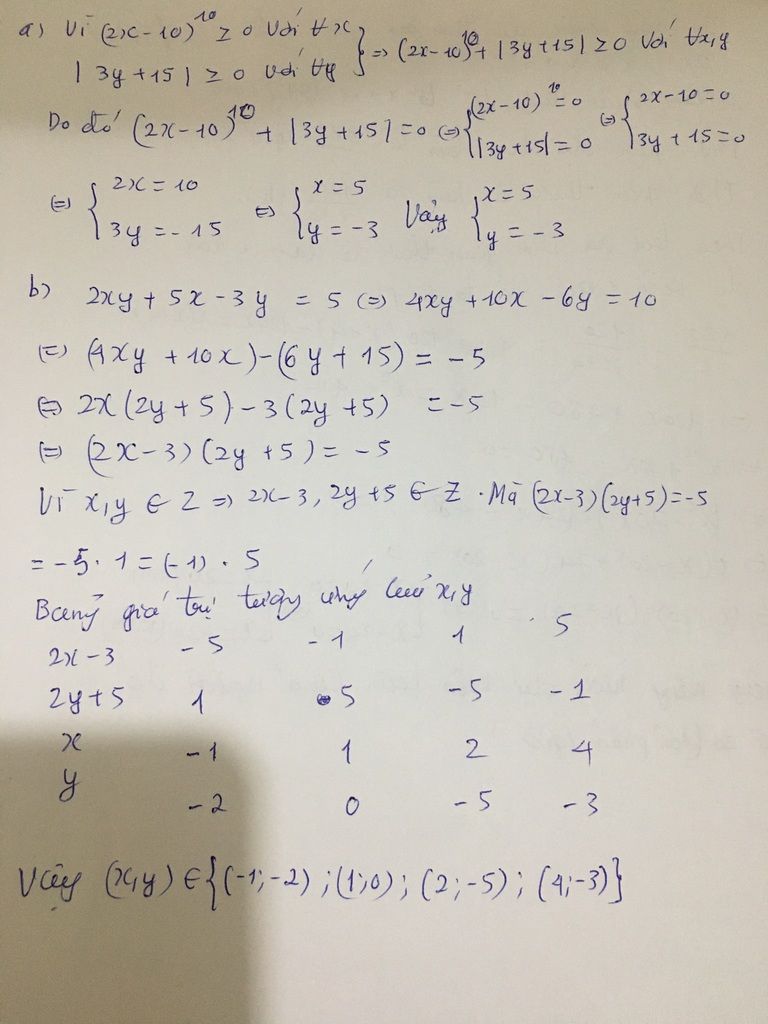 a) Vì (2x-10)^10 ≥ 0 với ∀x
|3y+15| ≥ 0 với ∀y } => (2x-10)^10 + |3y+15| ≥ 0 với ∀x,y
Do đó (2x-10)^10 + |3y+15| = 0 <=> { (2x-10)^10 = 0 |3y+15| = 0 <=> { 2x-10=0 3y+15=0
<=> { 2x=10 3y=-15 <=> { x=5 y=-3 Vậy { x=5 y=-3
b) 2xy+5x-3y = 5 <=> 4xy+10x-6y=10
<=> (4xy+10x)-(6y+15) = -5
<=> 2x(2y+5)-3(2y+5) = -5
<=> (2x-3)(2y+5) = -5
Vì x,y ∈ Z => 2x-3, 2y+5 ∈ Z. Mà (2x-3)(2y+5)=-5
= -5.1 = (-1).5
Bảng giá trị tương ứng của x,y
2x-3 -5 -1 1 5
2y+5 1 5 -5 -1
x -1 1 2 4
y -2 0 -5 -3
Vậy (x,y) ∈ {(-1;-2);(1;0);(2;-5);(4;-3)}